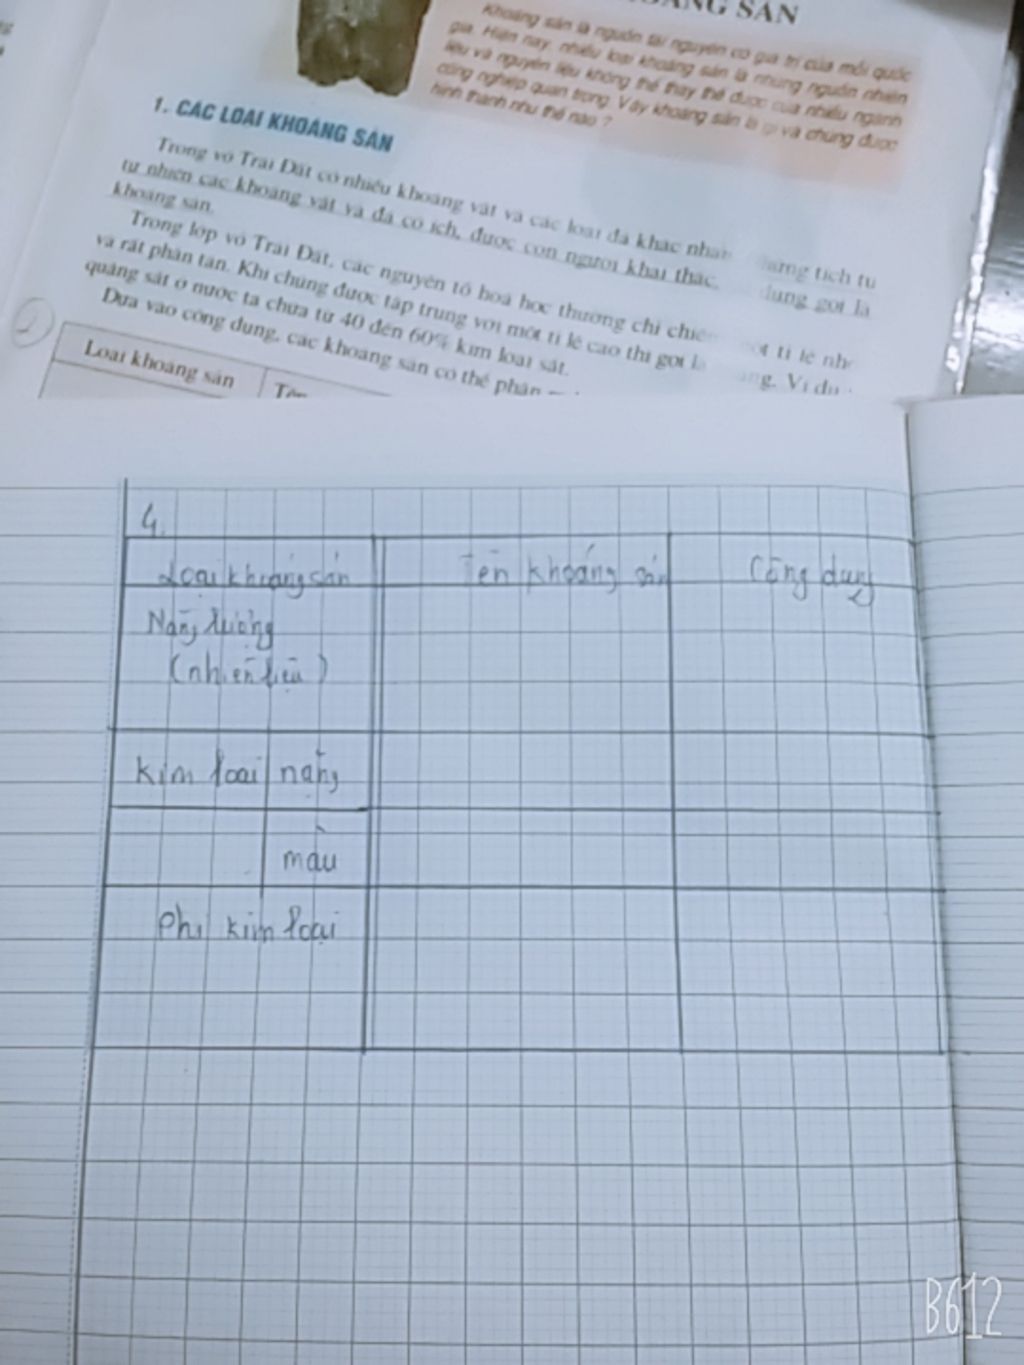 KHOÁNG SẢN
Khoáng sản là nguồn tài nguyên có giá trị của mỗi quốc
gia. Hiện nay, nhiều loại khoáng sản là những nguồn nhiên
liệu và nguyên liệu không thể thay thế được của nhiều ngành
công nghiệp quan trọng. Vậy khoáng sản là gì và chúng được
hình thành như thế nào ?
1. CÁC LOẠI KHOÁNG SẢN
Trong vỏ Trái Đất có nhiều khoáng vật và các loại đá khác nhau. tích tụ
tự nhiên các khoáng vật và đá có ích, được con người khai thác, dụng gọi là
khoáng sản.
Trong lớp vỏ Trái Đất, các nguyên tố hoá học thường chỉ chiếm một tỉ lệ nhỏ
và rất phân tán. Khi chúng được tập trung với một tỉ lệ cao thì gọi là Ví dụ :
quặng sắt ở nước ta chứa từ 40 đến 60% kim loại sắt.
Dựa vào công dụng, các khoáng sản có thể phân
Loại khoáng sản Tên
4.
Loại khoáng sản Tên khoáng sản Công dụng
Năng lượng
(nhiên liệu)
Kim loại nặng
màu
Phi kim loại
B612